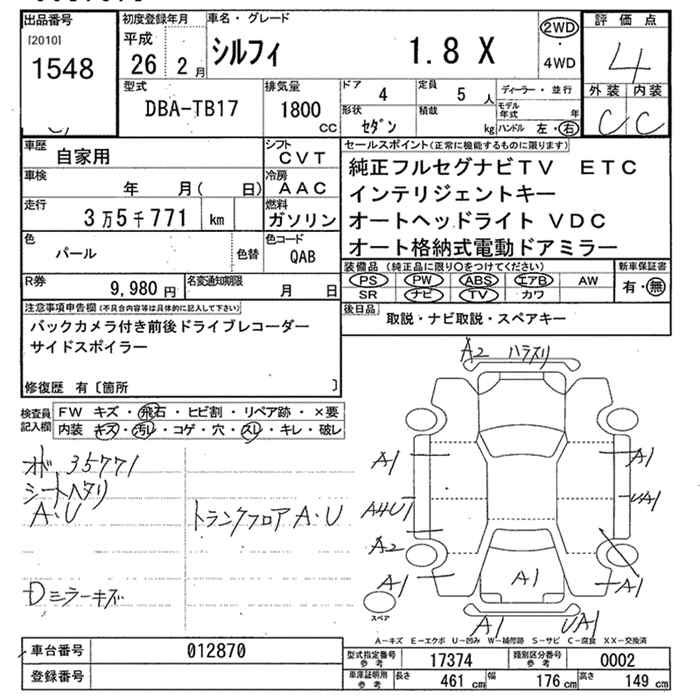 出品番号
[2010]
1548
初度登録年月
平成
26 2月
車名・グレード
シルフィ 1.8 X
2WD
・
4WD
評価点
4
外装 内装
C C
型式
DBA-TB17
排気量
1800
CC
ドア 4
定員 5 人
ディーラー・並行
形状 セダン
積載 kg
モデル年式 年
ハンドル 左・右
車歴
自家用
シフト
CVT
車検
年 月( 日)
冷房
AAC
走行
3万5千771 km
燃料
ガソリン
色
パール
色替
色コード
QAB
R券
9,980円
名変通知期限
月 日
セールスポイント(正常に機能するものに限ります)
純正フルセグナビTV ETC
インテリジェントキー
オートヘッドライト VDC
オート格納式電動ドアミラー
装備品(純正品に限り○をつけてください)
PS PW ABS エアB AW
SR ナビ TV カワ
新車保証書
有・無
後日品
取説・ナビ取説・スペアキー
注意事項申告欄(不具合内容等は具体的に記入して下さい)
バックカメラ付き前後ドライブレコーダー
サイドスポイラー
修復歴 有〔箇所 〕
検査員記入欄
FW キズ・飛石・ヒビ割・リペア跡・×要
内装・キズ・汚レ・コゲ・穴・スレ・キレ・破レ
オボ 35771
シートヘタリ
A・U
トランクフロアA・U
Dミラーキズ
A2 ハラスリ
A1 A1
A4U1 UA1
A2
A1 A1 A1
スペア
A1 UA1
A-キズ E-エクボ U-凹み W-補修跡 S-サビ C-腐食 XX-交換済
車台番号
012870
登録番号
型式指定番号
参考
17374
類別区分番号
参考
0002
車庫証明用
参考
長さ 461 cm
幅 176 cm
高さ 149 cm